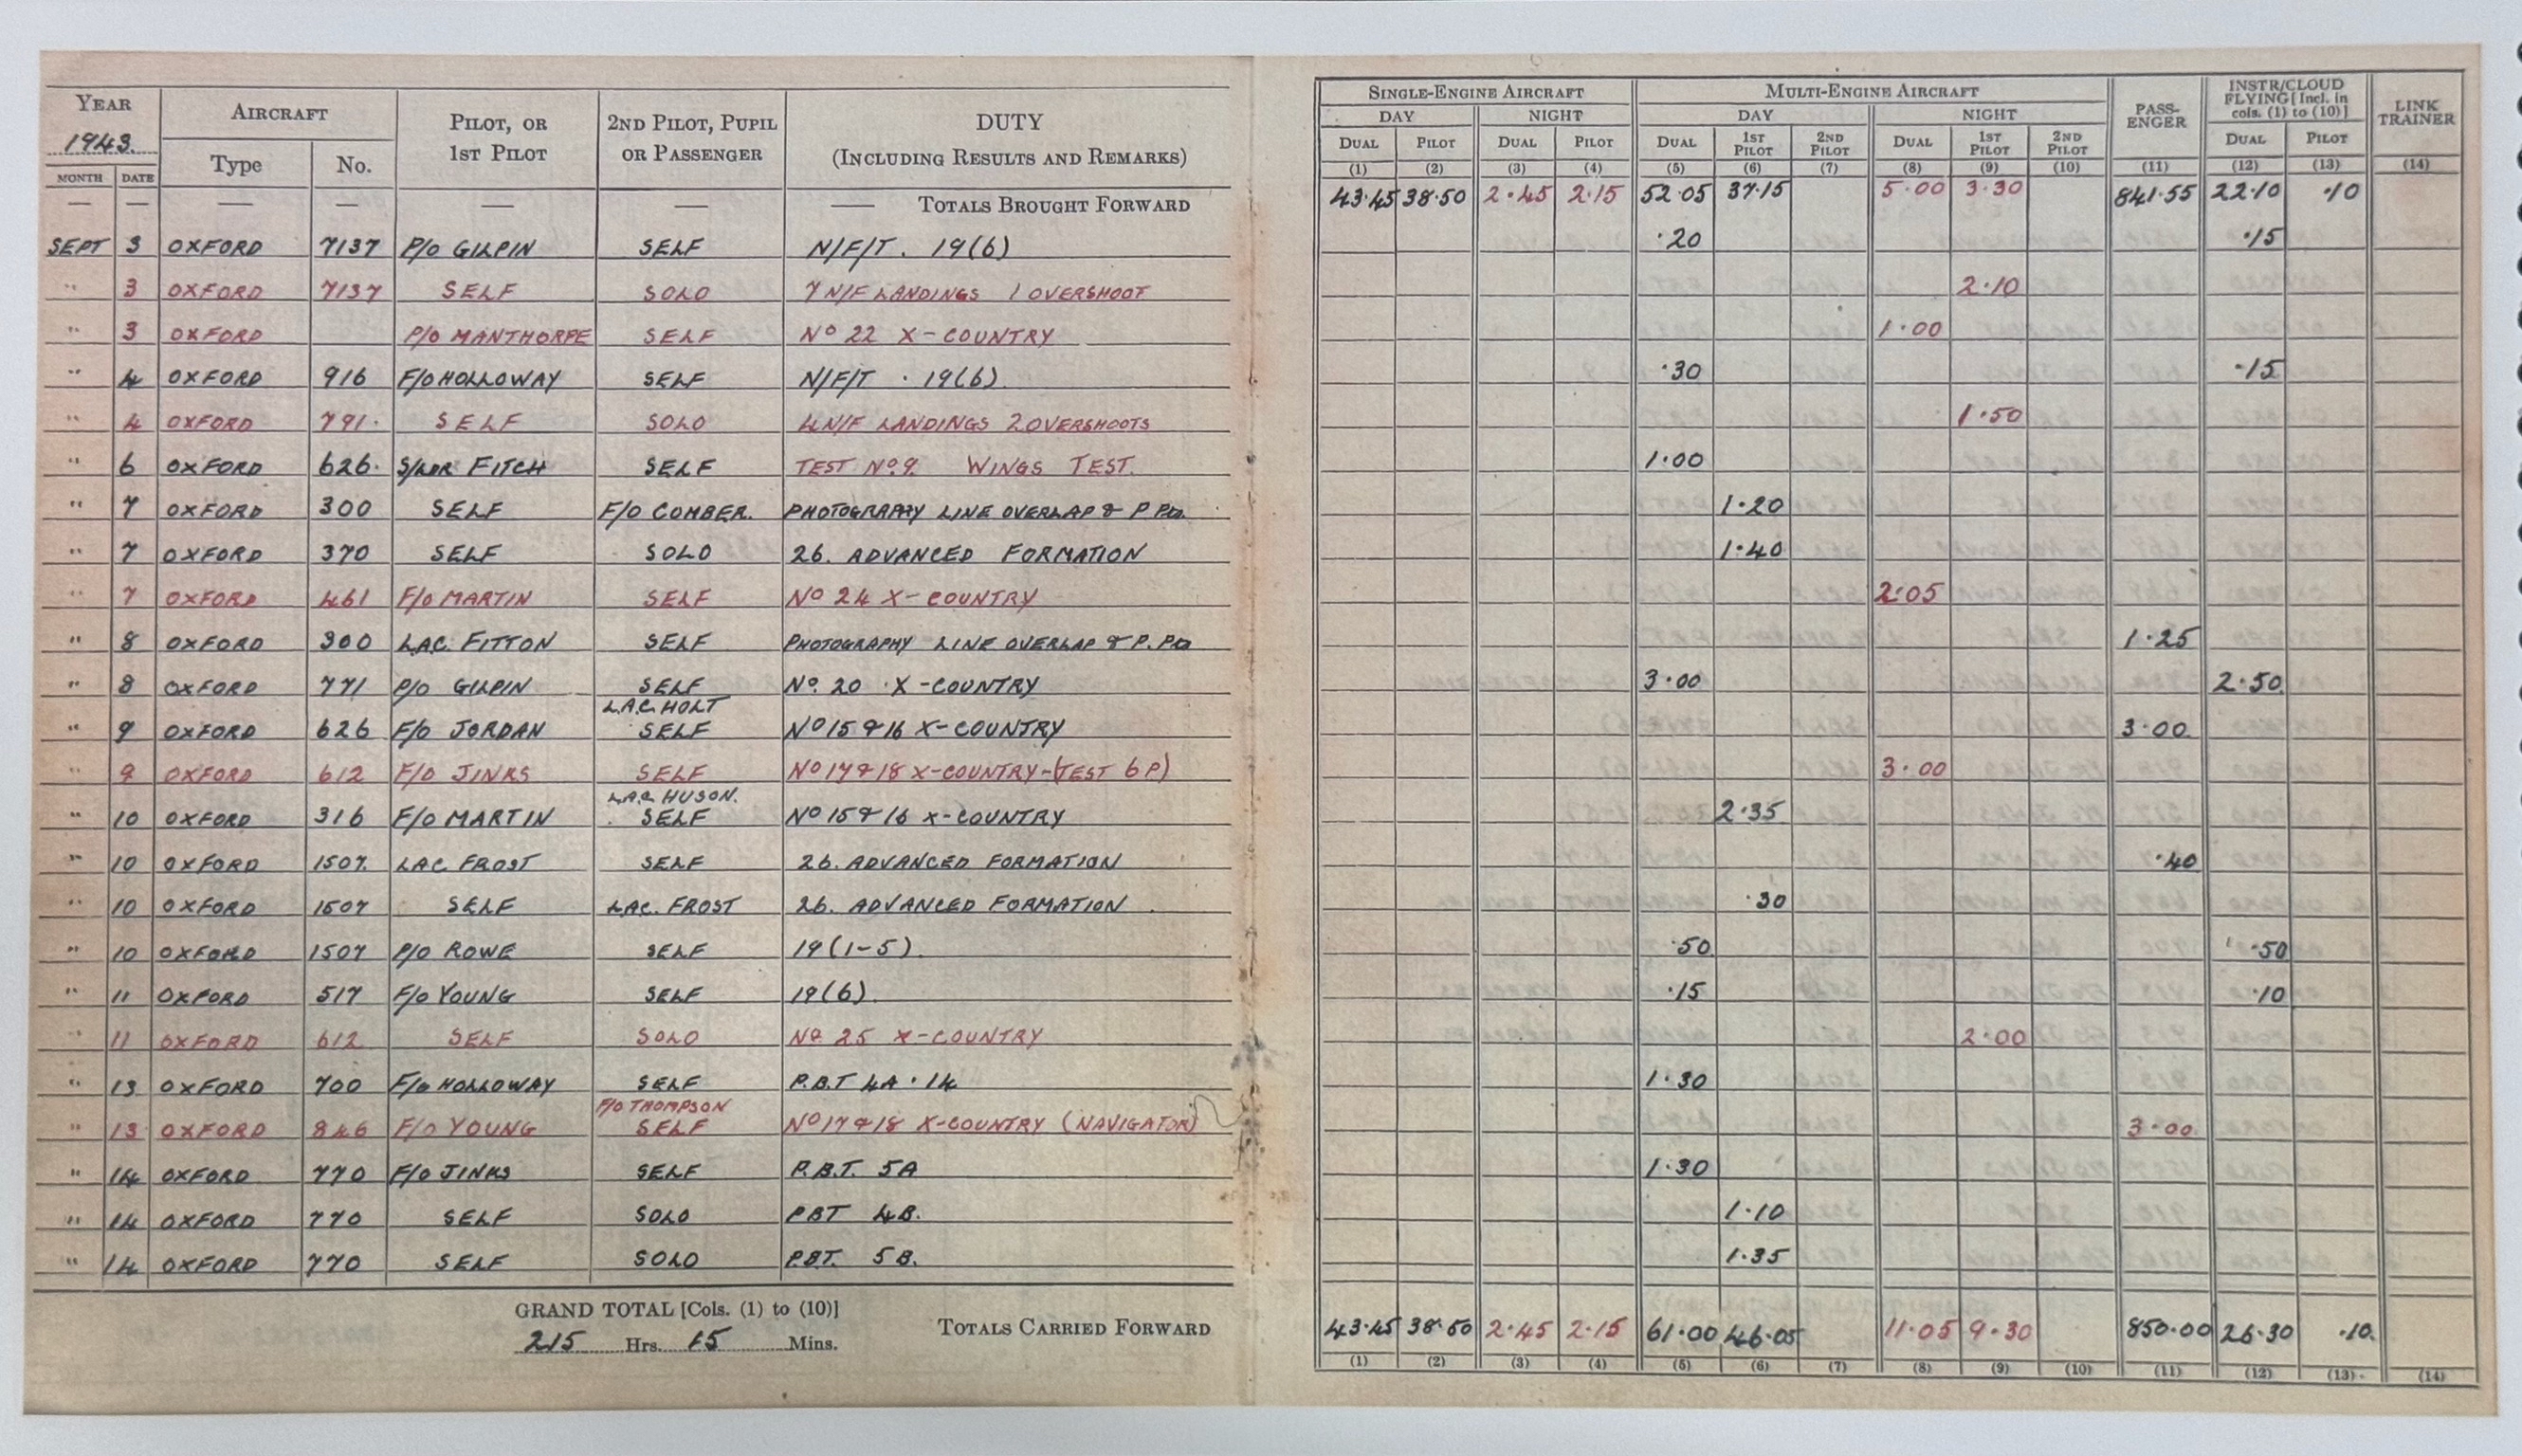 YEAR 1943. AIRCRAFT PILOT, OR 1ST PILOT 2ND PILOT, PUPIL OR PASSENGER DUTY (INCLUDING RESULTS AND REMARKS) SINGLE-ENGINE AIRCRAFT MULTI-ENGINE AIRCRAFT PASS-ENGER INSTR/CLOUD FLYING [Incl. in cols. (1) to (10)] LINK TRAINER
DAY NIGHT DAY NIGHT
MONTH DATE Type No. DUAL PILOT DUAL PILOT DUAL 1ST PILOT 2ND PILOT DUAL 1ST PILOT 2ND PILOT DUAL PILOT
(1) (2) (3) (4) (5) (6) (7) (8) (9) (10) (11) (12) (13) (14)
— — — — — — — TOTALS BROUGHT FORWARD 43.45 38.50 2.45 2.15 52.05 37.15 5.00 3.30 841.55 22.10 .10
SEPT 3 OXFORD 7137 P/O GILPIN SELF N/F/T. 19(6) .20 .15
" 3 OXFORD 7137 SELF SOLO 7 N/F LANDINGS 1 OVERSHOOT 2.10
" 3 OXFORD P/O MANTHORPE SELF No 22 X-COUNTRY 1.00
" 4 OXFORD 916 F/O HOLLOWAY SELF N/F/T . 19(6). .30 .15
" 4 OXFORD 791. SELF SOLO 4 N/F LANDINGS 2 OVERSHOOTS 1.50
" 6 OXFORD 626. S/LDR FITCH SELF TEST No 9. WINGS TEST. 1.00
" 7 OXFORD 300 SELF F/O COMBER. PHOTOGRAPHY LINE OVERLAP & P 1.20
" 7 OXFORD 370 SELF SOLO 26. ADVANCED FORMATION 1.40
" 7 OXFORD 461 F/O MARTIN SELF No 24 X-COUNTRY 2.05
" 8 OXFORD 300 LAC. FITTON SELF PHOTOGRAPHY LINE OVERLAP & P. 1.25
" 8 OXFORD 771 P/O GILPIN SELF No. 20 X-COUNTRY 3.00 2.50
L.A.C. HOLT
" 9 OXFORD 626 F/O JORDAN SELF No 15 & 16 X-COUNTRY 3.00
" 9 OXFORD 612 F/O JINKS SELF No 17 & 18 X-COUNTRY-(TEST 6P) 3.00
L.A.C. HUSON.
" 10 OXFORD 316 F/O MARTIN SELF No 15 & 16 X-COUNTRY 2.35
" 10 OXFORD 1507. LAC FROST SELF 26. ADVANCED FORMATION .40
" 10 OXFORD 1507 SELF LAC. FROST 26. ADVANCED FORMATION .30
" 10 OXFORD 1507 P/O ROWE SELF 19(1-5). .50 .50
" 11 OXFORD 517 F/O YOUNG SELF 19(6). .15 .10
" 11 OXFORD 612 SELF SOLO No 25 X-COUNTRY 2.00
" 13 OXFORD 700 F/O HOLLOWAY SELF P.B.T 4A.14 1.30
F/O THOMPSON
" 13 OXFORD 846 F/O YOUNG SELF No 17 & 18 X-COUNTRY (NAVIGATOR) 3.00
" 14 OXFORD 770 F/O JINKS SELF P.B.T. 5A 1.30
" 14 OXFORD 770 SELF SOLO PBT 4B. 1.10
" 14 OXFORD 770 SELF SOLO P.B.T. 5B. 1.35
GRAND TOTAL [Cols. (1) to (10)]
215 Hrs. 15 Mins. TOTALS CARRIED FORWARD 43.45 38.50 2.45 2.15 61.00 46.05 11.05 9.30 850.00 26.30 .10.
(1) (2) (3) (4) (5) (6) (7) (8) (9) (10) (11) (12) (13) (14)